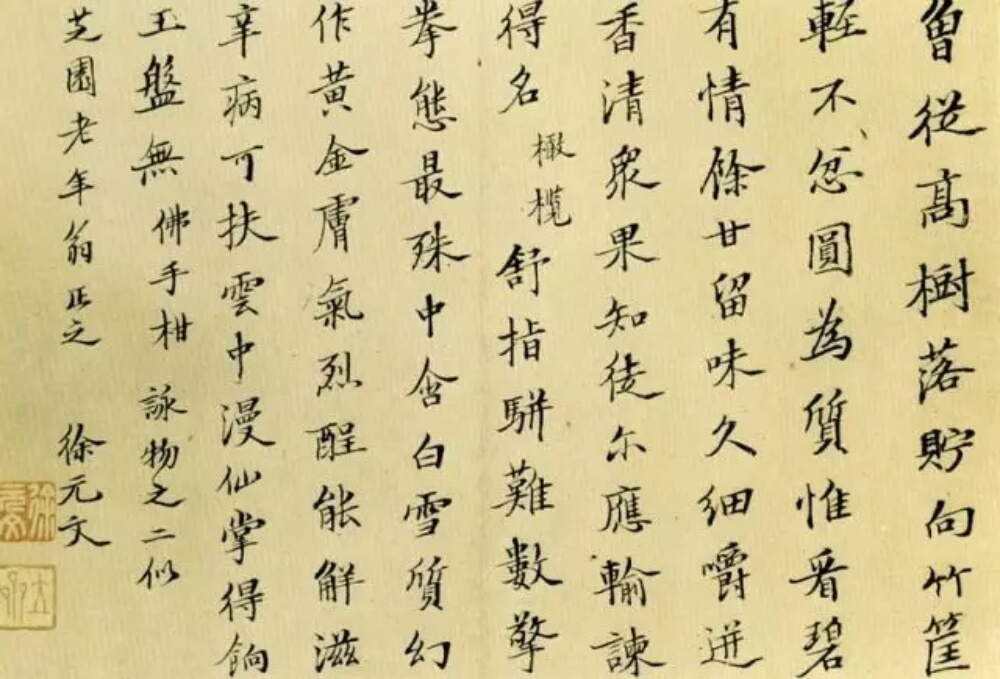 曾從高樹落貯向竹筐
輕不忿圓為質惟看碧
有情餘甘留味久細嚼迸
香清衆果知徒尓應輸諫
得名 橄欖 舒指駢難數擎
拳態最殊中含白雪質幻
作黃金膚氣烈酲能解滋
辛病可扶雲中漫仙掌得餉
玉盤無 佛手柑 詠物之二似
芝園老年翁正之 徐元文